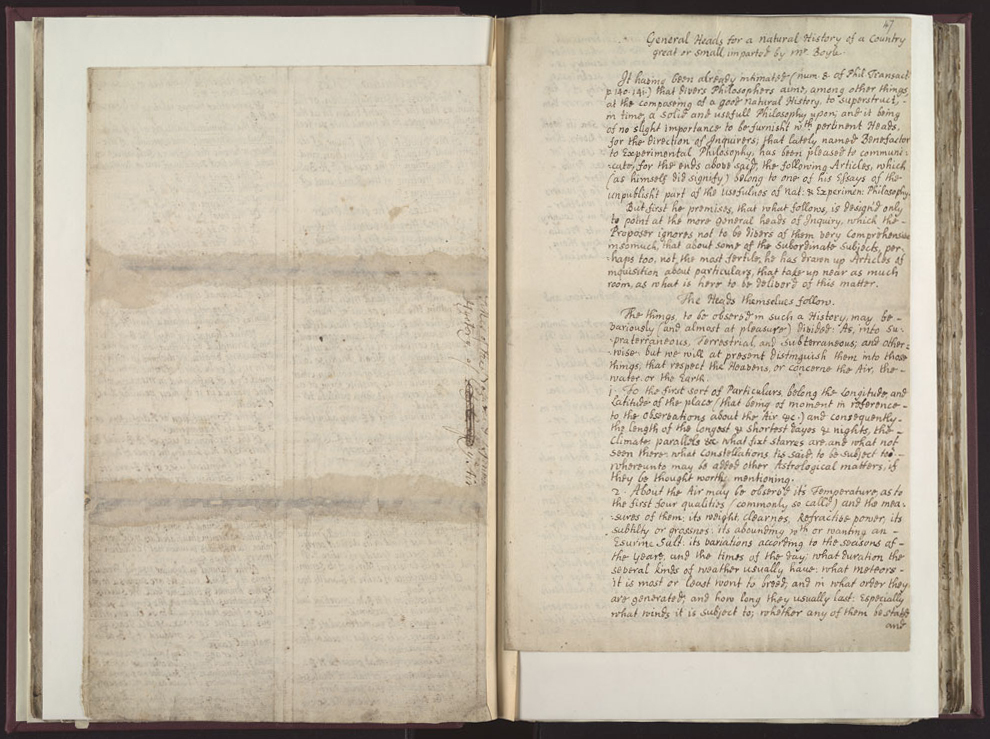 47
General Heads for a natural History of a Country
great or small imparted by Mr. Boyle.
It having been already intimated (num. 8 of Phil. Transact
p 140. 141.) that divers Philosophers aime, among other things,
at the composing of a good natural History, to superstruct, -
in time, a solid and usefull Philosophy upon; and it being
of no slight importance to be furnisht wth pertinent Heads,
for the direction of Inquirers; that lately named Benefactor
to Experimental Philosophy, has been pleased to communi-
cate, for the ends above said, the following Articles, which
(as himself did signify) belong to one of his Essays of the
unpublisht part of the usefulnes of Nat: & Experimen: Philosophy.
But first he premises, that what follows, is design'd only
to point at the more general heads of Inquiry, which the -
Proposer ignores not to be divers of them very Comprehensive
insomuch, that about some of the Subordinate subjects, per-
haps too, not the most fertile, he has drawn up Articles of
inquisition about particulars, that take up near as much
room, as what is here to be deliver'd of this matter.
The Heads themselves follow.
The things, to be observed in such a History, may be -
variously (and almost at pleasure) divided: As, into Su-
praterraneous, Terrestrial, and Subterraneous; and other-
wise: but we will at present distinguish them into those
things, that respect the Heavens, or concerne the Air, the -
water, or the Earth.
1. To the first sort of Particulars, belong the Longitude and
Latitude of the place (that being of moment in reference -
to the observations about the Air &c.) and consequently -
the length of the longest & shortest dayes & nights, the -
Climate, parallels &c. what fixt starres are and what not
seen there: what Constellations tis said, to be subject too -
whereunto may be added other Astrological matters, if
they be thought worthy mentioning.
2. About the Air may be observ'd its Temperature, as to
the first four qualities (commonly so call'd) and the mea-
sures of them: its weight, clearnes, Refractive power, its
subtilty or grossnes: its abounding wth or wanting an -
Esurine Salt: its variations according to the seasons of -
the Yeare, and the times of the day; what duration the
several kinds of weather usually have: what meteors -
it is most or least wont to breed; and in what order they
are generated; and how long they usually last: Especially
what winds it is subject to; whether any of them be stated
and
History of